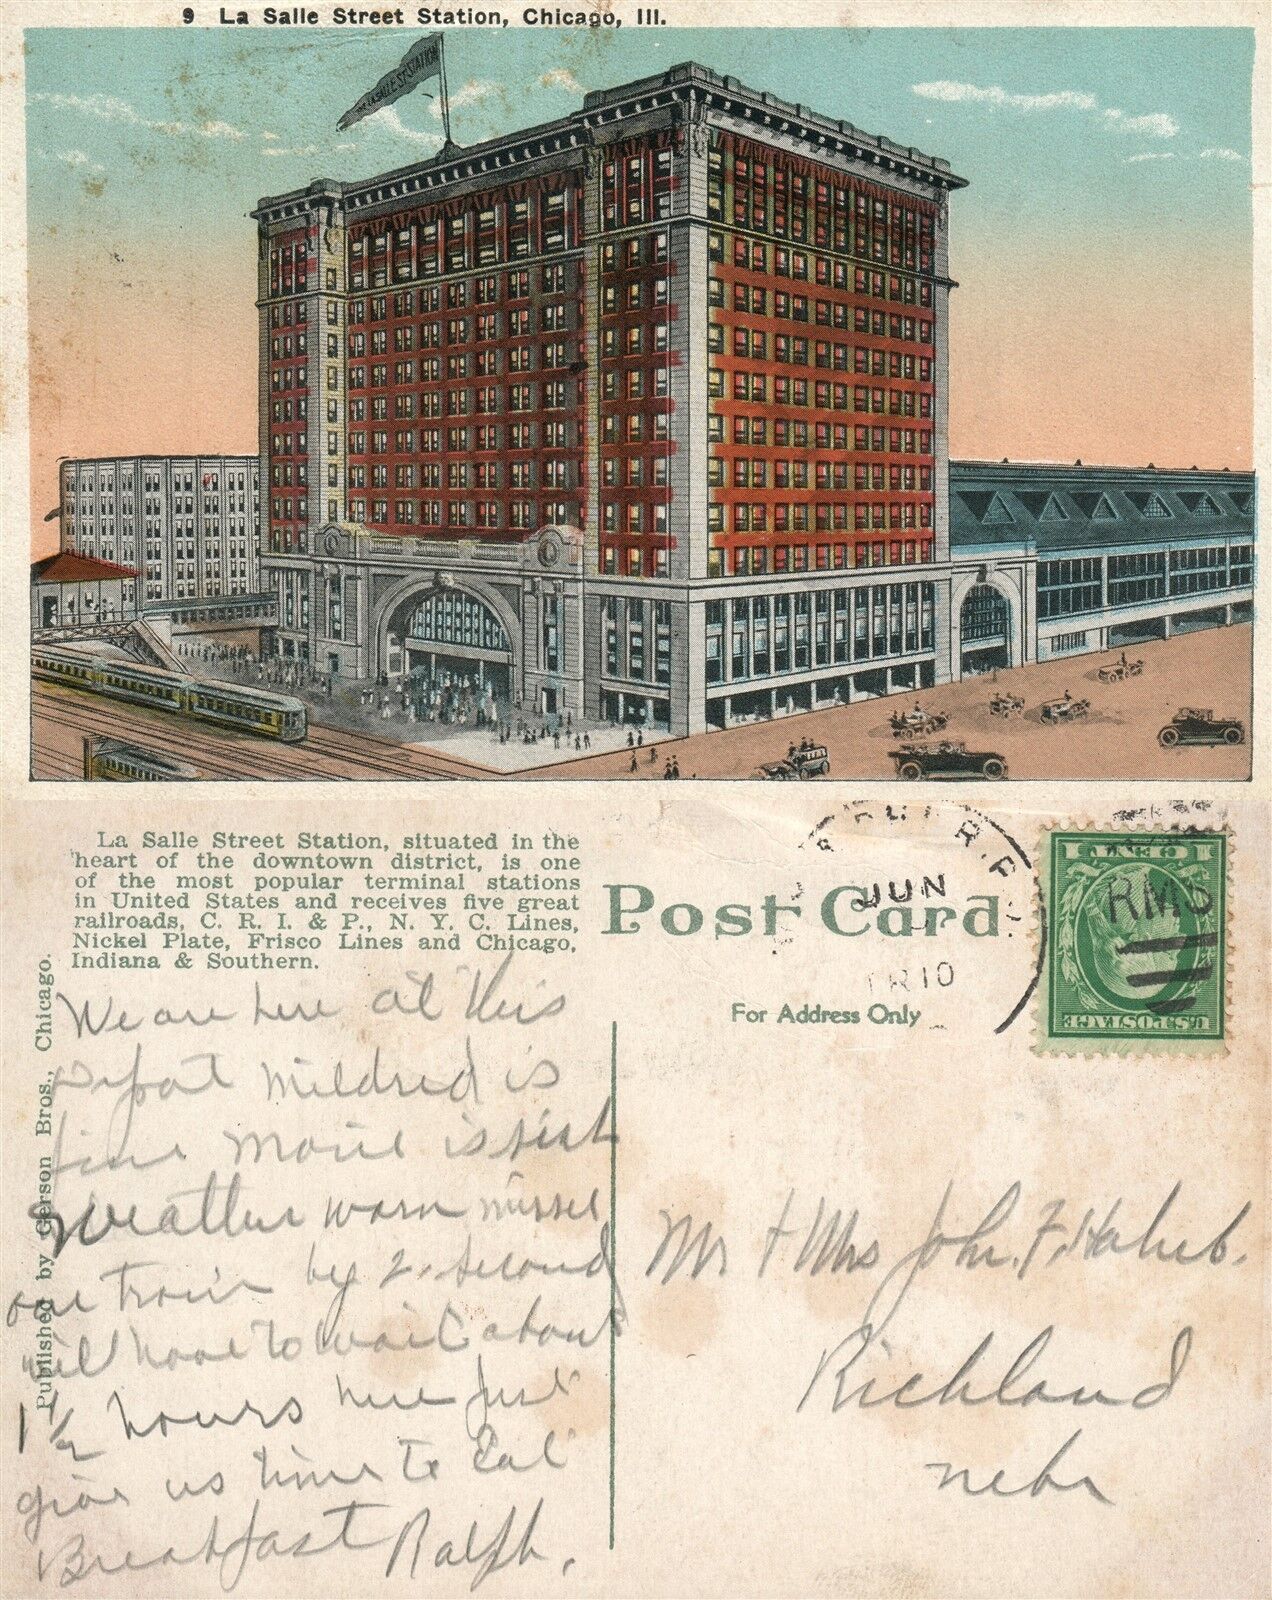 9 La Salle Street Station, Chicago, Ill.
LA SALLE ST. STATION
La Salle Street Station, situated in the
heart of the downtown district, is one
of the most popular terminal stations
in United States and receives five great
railroads, C. R. I. & P., N. Y. C. Lines,
Nickel Plate, Frisco Lines and Chicago,
Indiana & Southern.
Post Card
For Address Only
JUN
TR 10
RMS
1 CENT 1
U.S. POSTAGE
Published by Gerson Bros., Chicago.
We are here at this
Depot Mildred is
fine Marie is sick
Weather warm missed
our train by 2. second
will have to wait about
1 1/2 hours here Just
give us time to Eat
Breakfast Ralph.
Mr + Mrs John. F. Holub.
Richland
Nebr